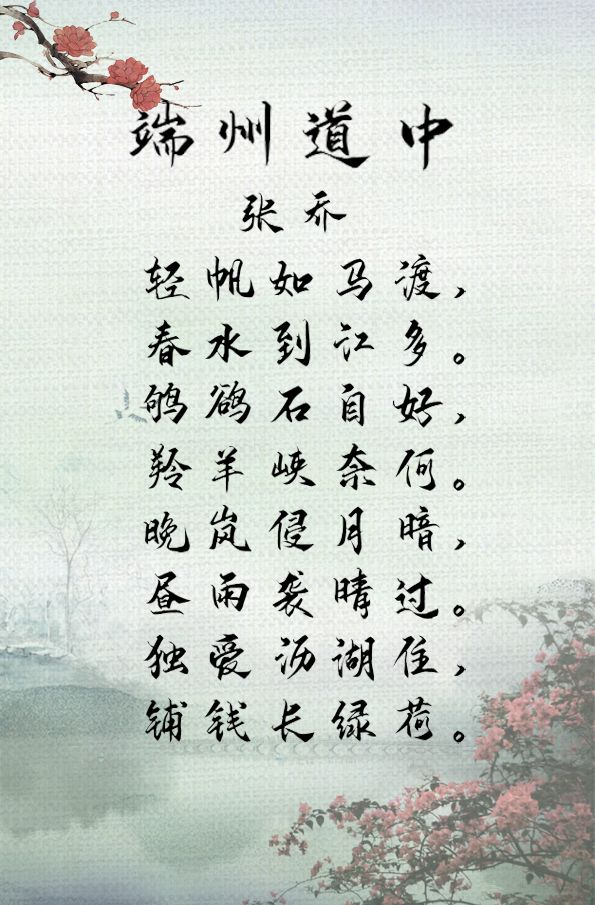 端州道中
张乔
轻帆如马渡，
春水到江多。
鸲鹆石自好，
羚羊峡奈何。
晚岚侵月暗，
昼雨袭晴过。
独爱沥湖住，
铺钱长绿荷。